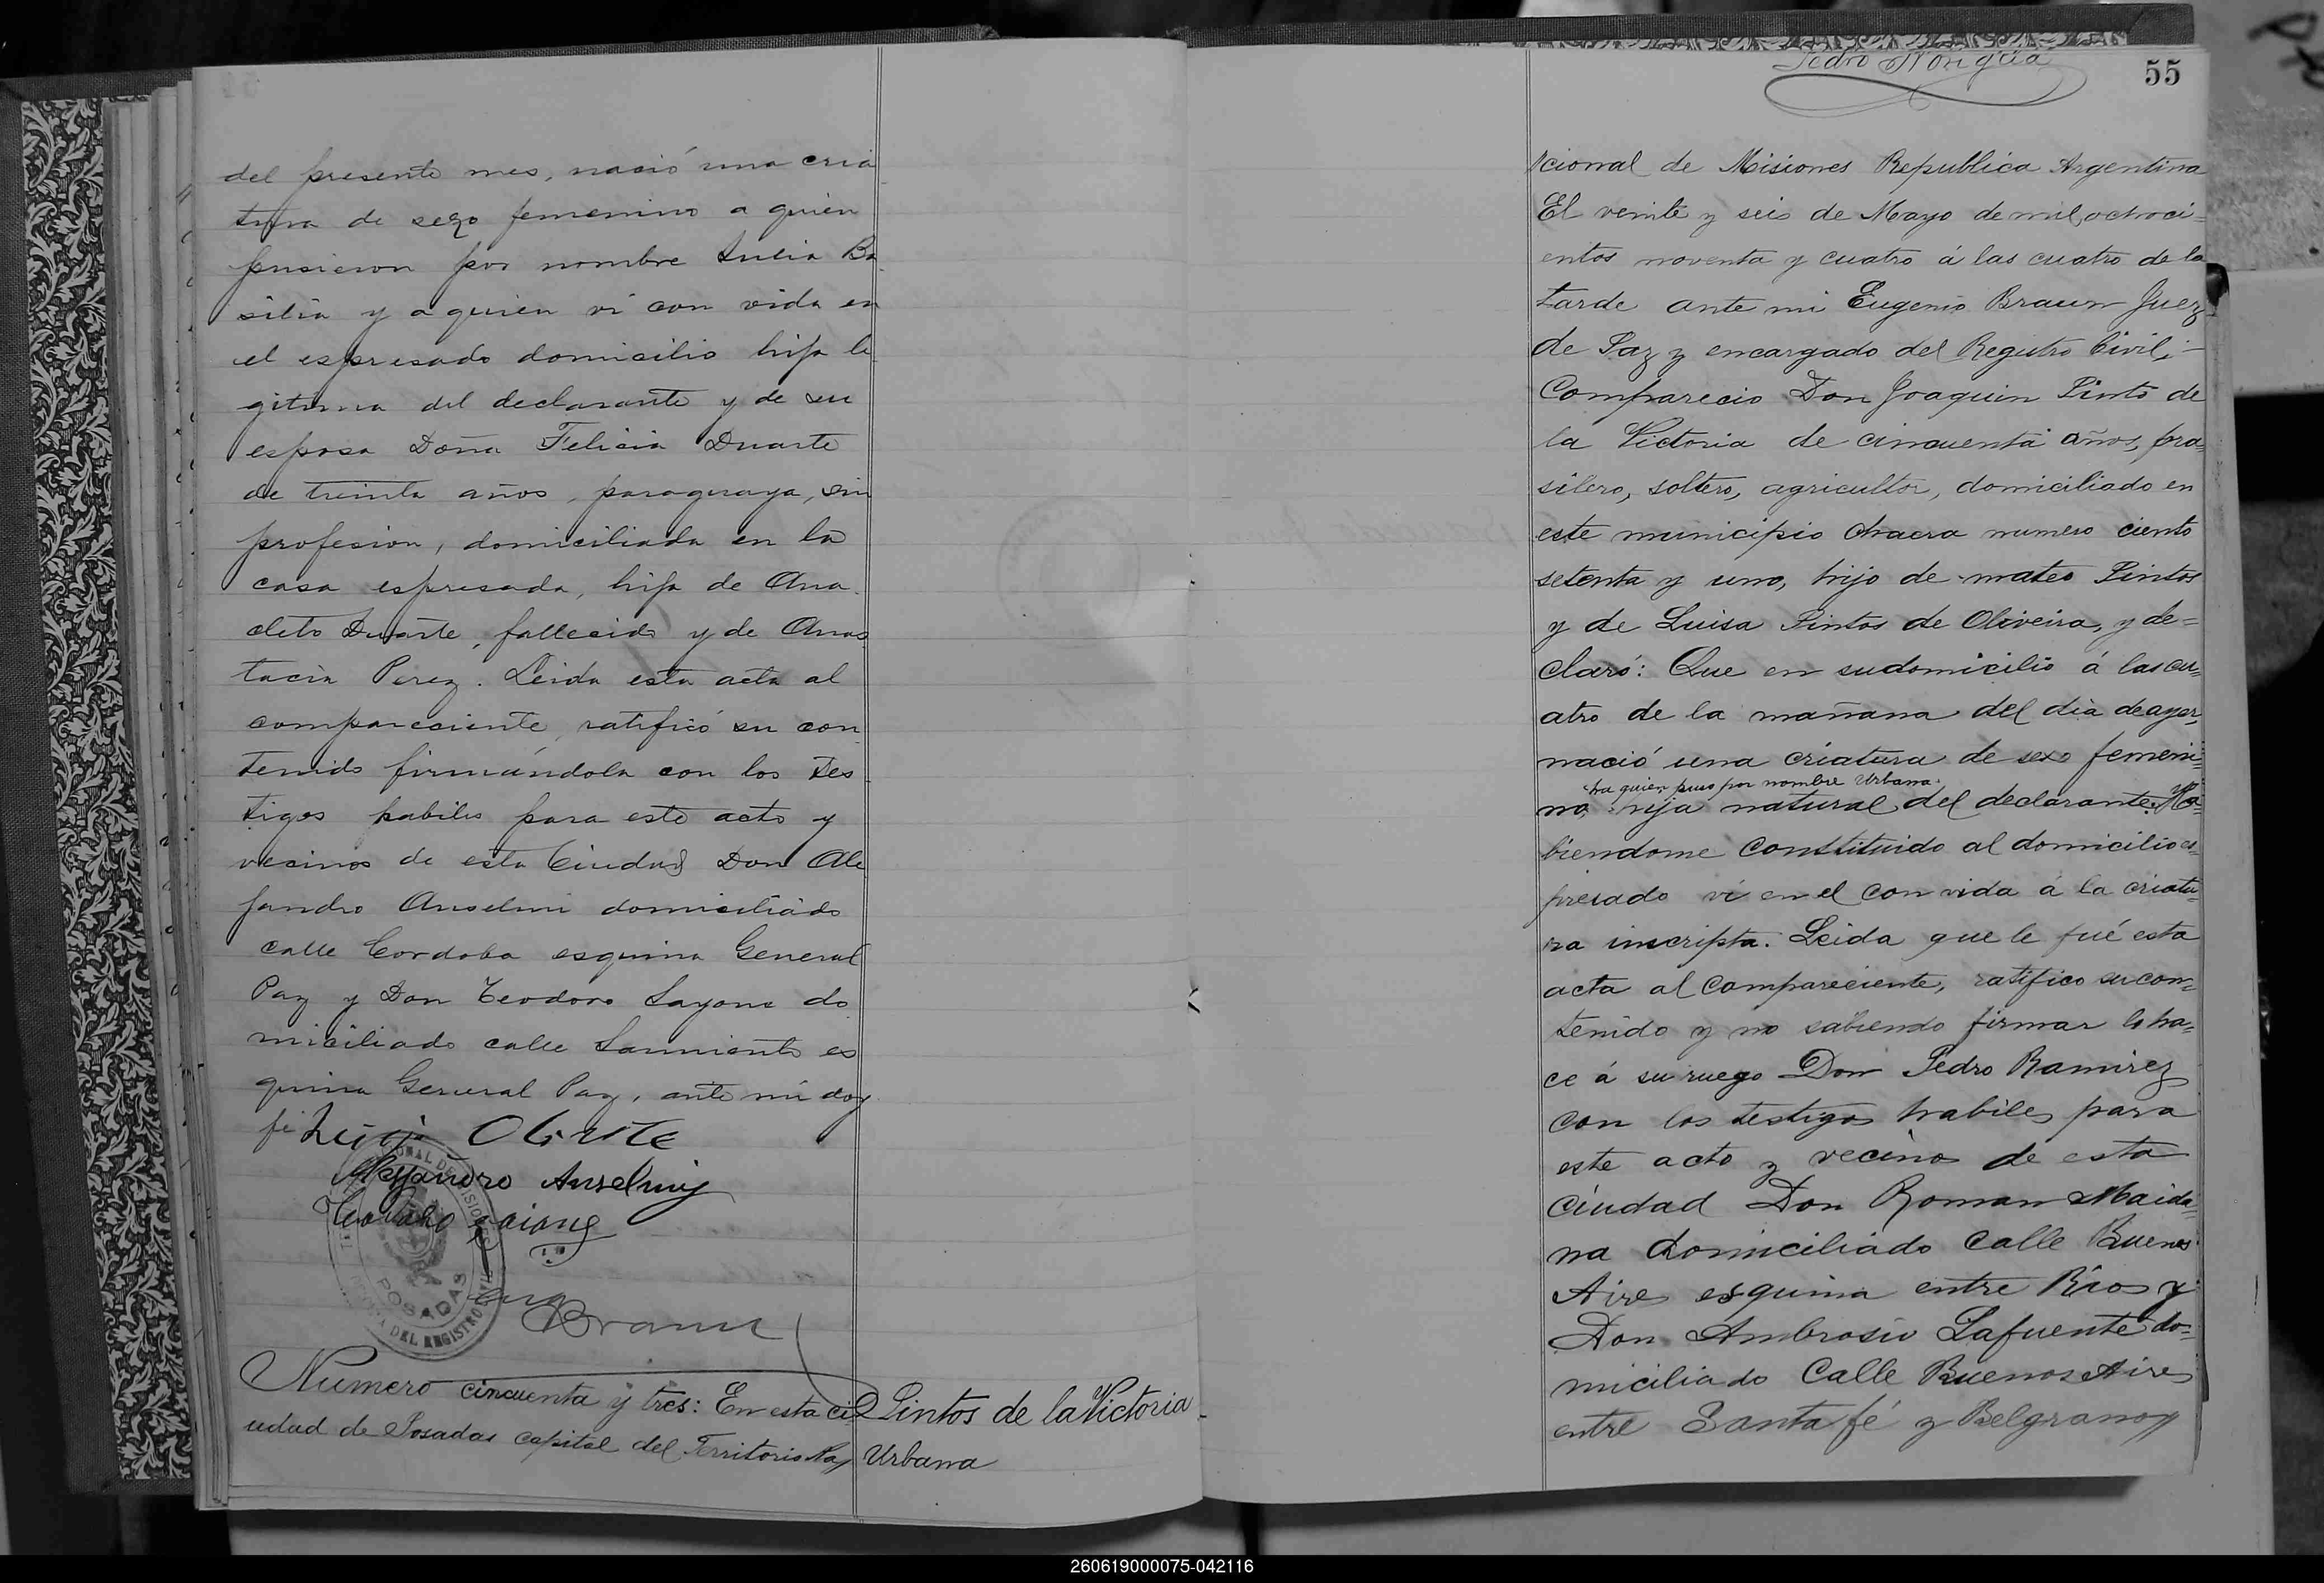 del presente mes, nació una cria
tura de sezo femenino a quien
pusieron por nombre Julia Ba
silia y a quien vi con vida en
el espresado domicilio hija le
gitima del declarante y de su
esposa Doña Felicia Duarte
de treinta años, paraguaya, sin
profesion, domiciliada en la
casa espresada, hija de Ana
cleto Duarte, fallecido y de Anas
tacia Perez. Leida esta acta al
compareciente, ratificó su con
tenido firmándola con los tes
tigos habiles para este acto y
vecinos de esta Ciudad Don Ale
jandro Anselmi domiciliado
calle Cordoba esquina General
Paz y Don Teodoro Sayone do
miciliado calle Sarmiento es
quina General Paz, ante mi doy
fé
Anselmi
Braun
POSADAS
DEL REGISTRO
Numero cincuenta y tres: En esta ci
udad de Posadas capital del Territorio Na
Pintos de la Victoria
Urbana
55
cional de Misiones Republica Argentina
El veinte y seis de Mayo de mil ochoci=
entos noventa y cuatro á las cuatro de la
tarde ante mi Eugenio Braun Juez
de Paz y encargado del Registro Civil;
Comparecio Don Joaquin Pinto de
la Victoria de cincuenta años, bra=
silero, soltero, agricultor, domiciliado en
este municipio chacra numero ciento
setenta y uno, hijo de mateo Pintos
y de Luisa Pintos de Oliveira, y de=
claró: Que en sudomicilio á las cu=
atro de la mañana del dia de ayer,
nació una criatura de sexo femeni=
ha quien puso por nombre Urbana.
no, hija natural del declarante. Ha=
biendome Constituido al domicilio es=
presado ví en el con vida á la criatu=
ra inscripta. Leida que le fué esta
acta al Compareciente, ratifico su con=
tenido y no sabiendo firmar lo ha=
ce á su ruego Don Pedro Ramirez
con los testigos habiles para
este acto y vecinos de esta
ciudad Don Roman Maida=
na domiciliado Calle Buenos
Aires esquina entre Rios y
Don Ambrosio Lafuente do=
miciliado Calle Buenos Aires
entre Santa fé y Belgrano
260619000075-042116